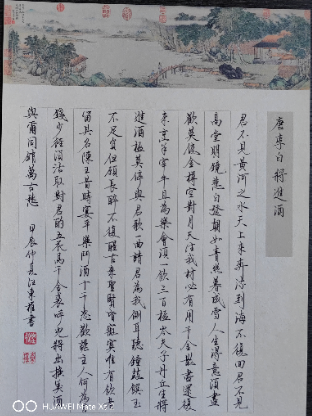 唐李白将進酒
君不見黄河之水天上来奔流到海不復回君不見
高堂明鏡悲白發朝如青絲暮成雪人生得意須盡
歡莫使金樽空對月天生我材必有用千金散盡還復
来烹羊宰牛且為樂會須一飲三百杯岑夫子丹丘生將
進酒杯莫停與君歌一曲請君為我側耳聽鐘鼓饌玉
不足貴但願長醉不復醒古来聖賢皆寂寞惟有飲者
留其名陳王昔時宴平樂斗酒十千恣歡謔主人何為
錢少徑須沽取對君酌五花馬千金裘呼兒將出換美酒
與爾同銷萬古愁
甲辰仲夏江東書
HUAWEI Mate Xs 2